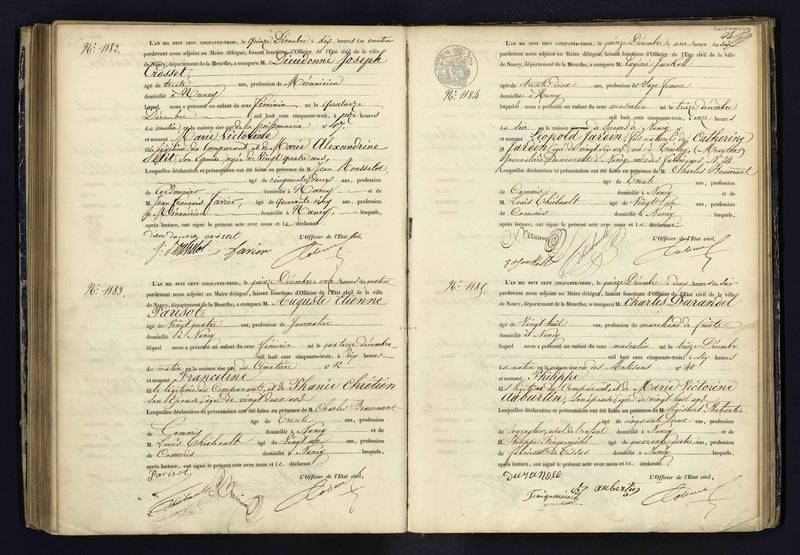 N° 1182.
L'AN MIL HUIT CENT CINQUANTE-TROIS, le quinze Décembre à dix heures du matin
pardevant nous adjoint au Maire délégué, faisant fonctions d'Officier de l'Etat civil de la ville
de Nancy, département de la Meurthe, a comparu M. Dieudonné Joseph
Crosset,
âgé de trente ans, profession de Mécanicien
domicilié à Nancy
lequel nous a présenté un enfant du sexe féminin né le quatorze
Décembre mil huit cent cinquante-trois, à onze heures
du matin en sa maison rue de la poissonnerie n° 107.
et nommé Marie Victorine
fille légitime du Comparant et de Marie Alexandrine
Petit son épouse âgée de Vingt quatre ans,
Lesquelles déclaration et présentation ont été faites en présence de M. Jean Mousselot
âgé de cinquante deux ans, profession
de Cordonnier domicilié à Nancy et de
M. Jean François Favier âgé de quarante six ans, profession
de Mécanicien domicilié à Nancy lesquels,
après lecture, ont signé le présent acte avec nous et le déclarant
L'Officier de l'Etat civil,
N° 1183.
L'AN MIL HUIT CENT CINQUANTE-TROIS, le quinze Décembre à onze heures du matin
pardevant nous adjoint au Maire délégué, faisant fonctions d'Officier de l'Etat civil de la ville
de Nancy, département de la Meurthe, a comparu M. Auguste Etienne
Parisot
âgé de Vingt quatre ans, profession de Journalier
domicilié à Nancy
lequel nous a présenté un enfant du sexe féminin né le quatorze décembre
mil huit cent cinquante-trois, à dix heures
du matin en sa maison rue du Cimetière n° 12
et nommé Franceline
fille légitime du Comparant et de Phanie Chrétien
son épouse, âgée de vingt deux ans
Lesquelles déclaration et présentation ont été faites en présence de M. Charles Beaucourt
âgé de Trente ans, profession
de Commis domicilié à Nancy et de
M. Louis Thiébault âgé de Vingt ans, profession
de Commis domicilié à Nancy lesquels,
après lecture, ont signé le présent acte avec nous et le déclarant
Parisot
L'Officier de l'Etat civil,
Thiébault
N° 1184
L'AN MIL HUIT CENT CINQUANTE-TROIS, le quinze Décembre à une heure du soir
pardevant nous adjoint au Maire délégué, faisant fonctions d'Officier de l'Etat civil de la ville
de Nancy, département de la Meurthe, a comparu M.
âgé de trente deux ans, profession de Sage femme
domicilié à Nancy
lequel nous a présenté un enfant du sexe masculin né le treize décembre
mil huit cent cinquante-trois, à onze heures
du soir en sa maison
et nommé Léopold Jardein fils naturel de Catherine
Jardein âgée de vingt six ans
demeurant à Nancy rue des fabriques N° 34
Lesquelles déclaration et présentation ont été faites en présence de M. Charles Beaucourt
âgé de Trente ans, profession
de Commis domicilié à Nancy et de
M. Louis Thiébault âgé de Vingt ans, profession
de Commis domicilié à Nancy lesquels,
après lecture, ont signé le présent acte avec nous et le déclarant
L'Officier de l'Etat civil,
N° 1185
L'AN MIL HUIT CENT CINQUANTE-TROIS, le quinze Décembre à deux heures du soir
pardevant nous adjoint au Maire délégué, faisant fonctions d'Officier de l'Etat civil de la ville
de Nancy, département de la Meurthe, a comparu M. Charles Durandel
âgé de Vingt huit ans, profession de marchand de fruits
domicilié à Nancy
lequel nous a présenté un enfant du sexe masculin né le treize Décembre
mil huit cent cinquante-trois, à six heures
du matin en sa maison rue des Artisans n° 40
et nommé Philippe
fils légitime du Comparant et de Marie Victorine
Aubertin, son épouse âgée de vingt huit ans
Lesquelles déclaration et présentation ont été faites en présence de M. Sigisbert Aubertin
âgé de cinquante deux ans, profession
de domicilié à Nancy et de
M. Philippe âgé de quarante quatre ans, profession
de fabricant de Tissus domicilié à Nancy lesquels,
après lecture, ont signé le présent acte avec nous et le déclarant
Durandel
L'Officier de l'Etat civil,
aubertin